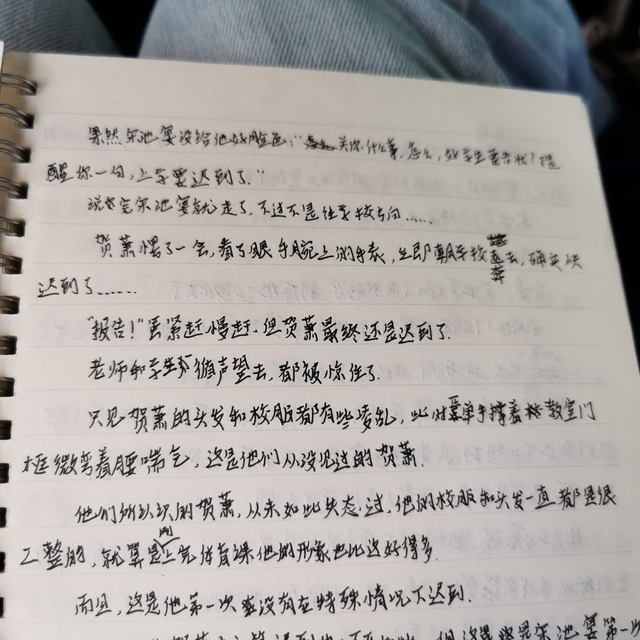 果然宋池宴没给他好脸色:"关你什么事,怎么,好学生要告状?提
醒你一句,上学要迟到了."
说完宋池宴就走了,不过不是往学校方向......
贺萧愣了一会,看了眼手腕上的手表,立即朝学校奔去,确实快
迟到了......
"报告!"虽紧赶慢赶,但贺萧最终还是迟到了.
老师和学生们循声望去,都被惊住了.
只见贺萧的头发和校服都有些凌乱,此时单手撑着教室门
框微弯着腰喘气,这是他们从没见过的贺萧.
他们所认识的贺萧,从未如此失态过,他的校服和头发一直都是很
工整的,就算是刚上完体育课他的形象也比这好得多.
而且,这是他第一次在没有在特殊情况下迟到.